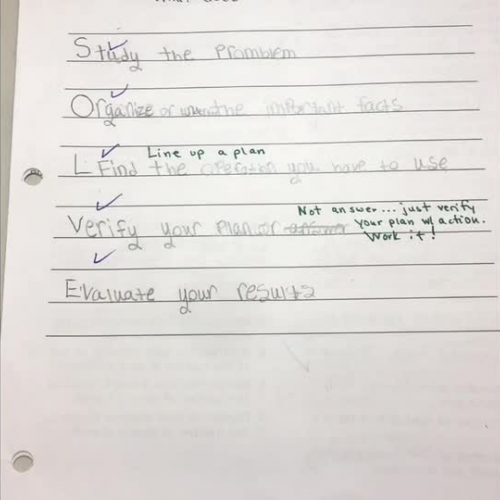 Study the Promblem
Organize or the important facts
Line up a plan
L Find the operation you have to use
Not answer... just verify
your plan w/ action.
Work it!
Verify your Plan or answer
Evaluate your results